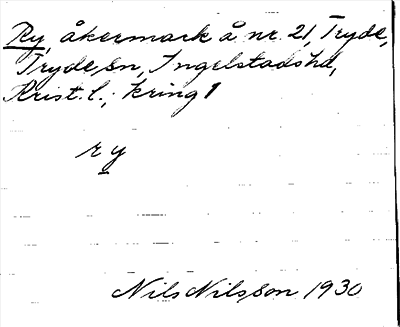 Ry, åkermark å nr. 21, Tryde,
Tryde sn, Ingelstads hd,
Krist. l.; kring 1
ry
Nils Nilsson 1930